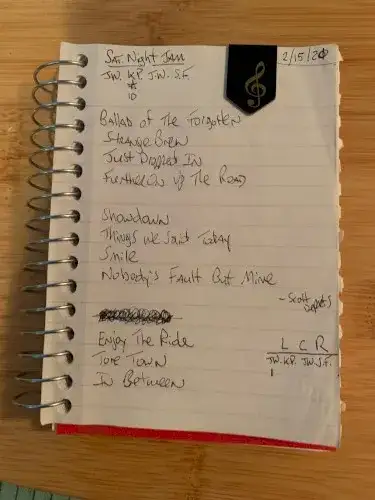 Sat. Night Jam
2/15/20
J.W. K.P. J.W. S.F.
10
Ballad of The Forgotten
Strange Brew
Just Dropped In
Further On Up The Road
Showdown
Things We Said Today
Smile
Nobody's Fault But Mine
- Scott
Departs
Enjoy The Ride
Tore Town
In Between
L C R
J.W. K.P. J.W. S.F.
1